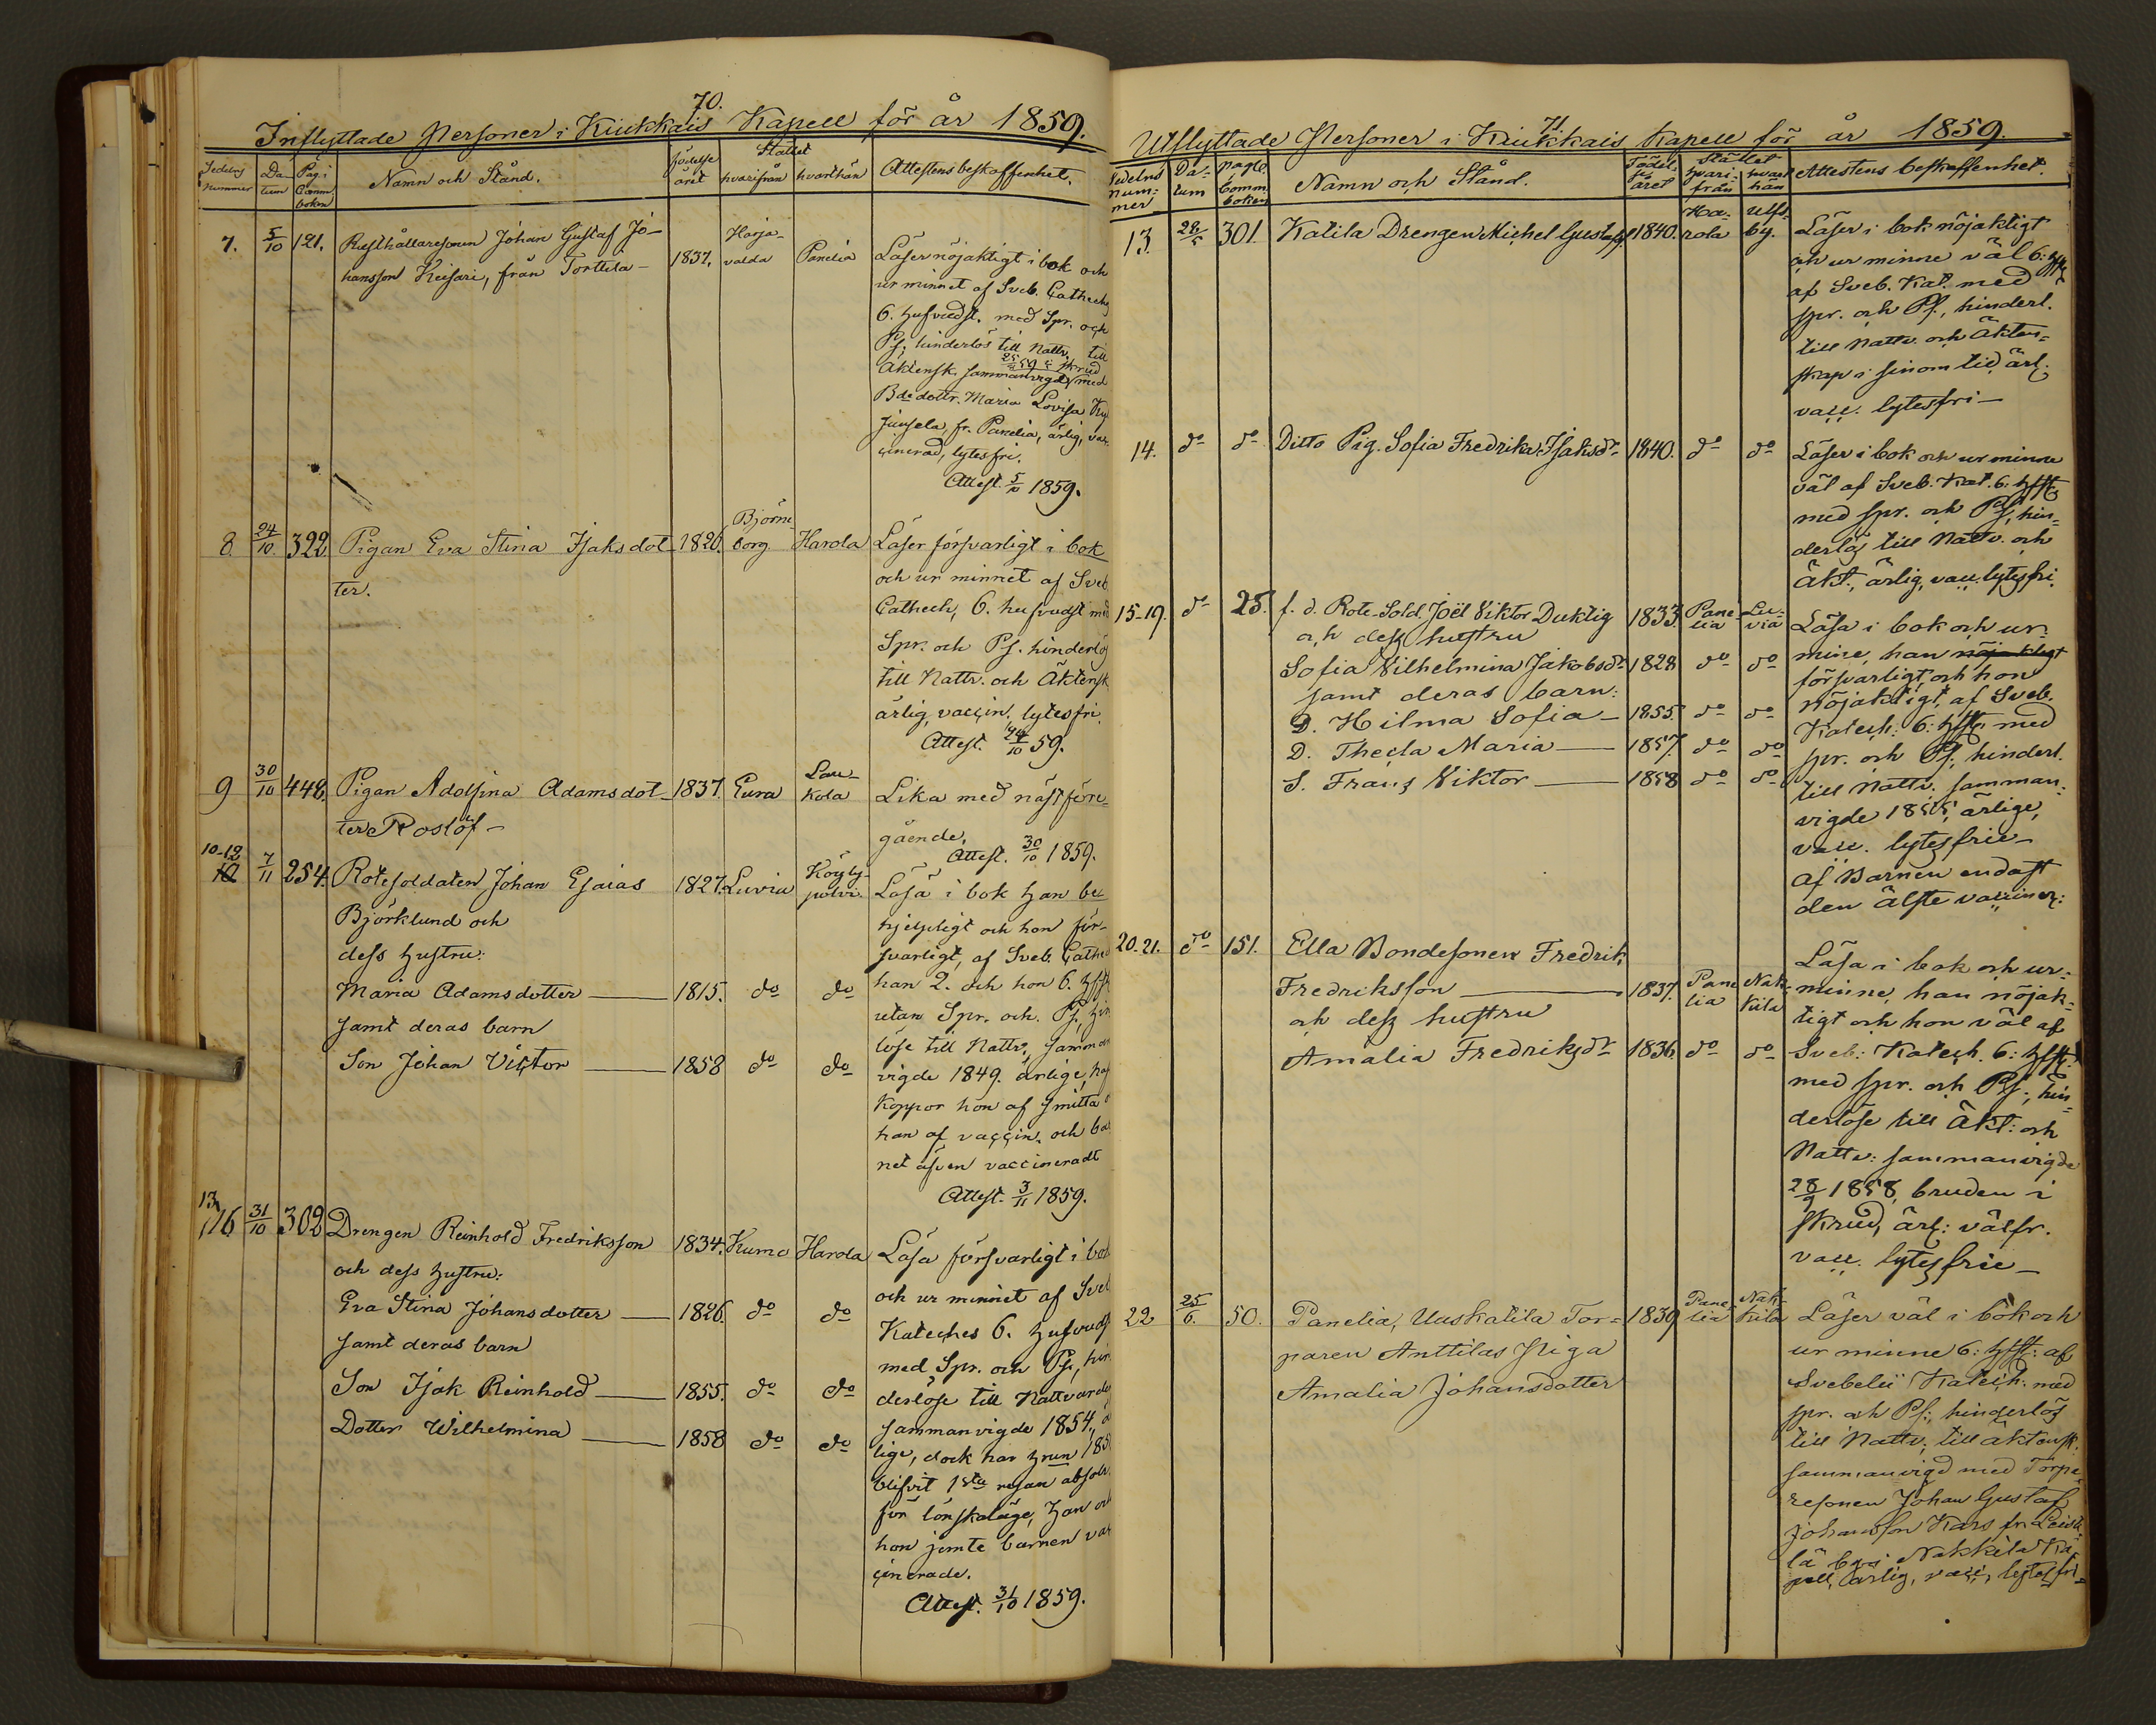 70.
Inflyttade Personer i Kiukkais Kapell för år 1859.
Sedelns nummer
Datum
Pag. i Comm. boken
Namn och Stånd.
födelse året
Stället
hvarifrån
hvarthän
Attestens beskaffenhet.
7. 5/10 121. Rusthållaresonen Johan Gustaf Jo-
hansson Keisari, från Torttila - 1837. Harja-
valda Panelia
Läser nöjaktigt i bok och
ur minnet af Sveb. Catheches
6. hufvudst. med Spr. och
Ps; hinderlös till Nattv. till
Äktensk. sammanvigd 25/9 59 i skrud med
Bdedottr. Maria Lovisa
fr. Panelia, ärlig, vac-
cinerad, lytesfri.
Attest. 5/10 1859.
8 24/10 322 Pigan Eva Stina Isaksdot- 1826. Björne-
borg Harola
ter.
Läser försvarligt i bok
och ur minnet af Sveb
Cathech, 6. hufvudst med
Spr. och Ps. hinderlös
till Nattv. och Äktensk
ärlig, vaccin. lytesfri.
Attest. 24/10 59.
9 30/10 448. Pigan Adolfina Adamsdot- 1837. Eura Lau-
kola
ter Roslöf -
Lika med näst före-
gående.
Attest. 30/10 1859.
10-12 7/11 254. Rotesoldaten Johan Esaias 1827. Luvia Köyly-
polvi.
Björklund och
dess hustru:
Maria Adamsdotter 1815. do do
samt deras barn
Son Johan Victor 1858 do do
Läsa i bok han be-
hjelpligt och hon för-
svarligt, af Sveb. Cathe
han 2. och hon 6. hfst
utan Spr. och. Ps, hin
löse till Nattv, samman
vigde 1849. ärlige, haf
Koppor hon af smitta o
han af vaccin. och ba
net äfven vaccineradt
Attest. 3/11 1859.
13,16 31/10 302 Drengen Reinhold Fredriksson 1834. Kumo Harola
och dess hustru:
Eva Stina Johansdotter 1826. do do
samt deras barn
Son Isak Reinhold 1855. do do
Dotter Wilhelmina 1858 do do
Läsa försvarligt i bok
och ur minnet af Sveb
Kateches 6. hufvudst
med Spr. och Ps, hin
derlöse till Nattvarde
sammanvigde 1854, ä
lige, dock har hon 185
blifvit 1sta resan absolv.
för lönskaläge, han och
hon jemte barnen vac
cinerade.
Attest. 31/10 1859.
71.
Utflyttade Personer i Kiukkais Kapell för år 1859.
Sedelns num-
mer
Da-
tum
pag. i
Comm.
boken
Namn och Stånd.
Födel-
se
året
Stället
hvari-
från
hvart
hän
Attestens beskaffenhet.
13. 28/5 301. Katila Drengen Michel Gustafss. 1840. Ha-
rola Ulfs-
by.
Läser i bok nöjaktigt
och ur minne väl 6: hfst
af Sveb. Kat. med
spr. och Ps., hinderl.
till Nattv. och Äkten-
skap i sinom tid ärl.
vacc. lytesfri -
14. do do Ditto Pig. Sofia Fredrika Isaksdr 1840. do do
Läser i bok och ur minne
väl af Sveb. Kat. 6: hfst
med spr. och Ps, hin-
derlös till Nattv. och
Äkt., ärlig, vacc. lytesfri.
15-19. do 25. f. d. Rote-Sold. Joël Viktor Duktig 1833. Pane-
lia Lu-
via
och dess hustru
Sofia Vilhelmina Jakobsdr 1828 do do
samt deras barn:
D. Hilma Sofia - 1855. do do
D. Thecla Maria 1857. do do
S. Frans Viktor 1858 do do
Läsa i bok och ur-
mine, han nöjaktigt
försvarligt, och hon
nöjaktigt, af Sveb.
Katech. 6: hfst. med
spr. och Ps, hinderl.
till Nattv. samman-
vigde 1855, ärlige,
vacc. lytesfrie -
Af Barnen endast
den älste vacciner:
20. 21. do 151. Ella Bondesonen Fredrik
Fredriksson 1837. Pane
lia Nak-
kila
och dess hustru
Amalia Fredriksdr 1836. do do
Läsa i bok och ur-
minne, han nöjak-
tigt och hon väl af
Sveb: Katech. 6: hfst:
med spr. och Ps., hin-
derlöse till Äkt: och
Nattv: sammanvigde
28/9 1858, bruden i
skrud, ärl: välfr.
vacc. lytesfrie -
22 25/6. 50. Panelia, Uuskatila Tor- 1839 Pane-
lia Nak-
kila
paren Anttilas Piga
Amalia Johansdotter
Läser väl i bok och
ur minne 6: hfst: af
Svebelii Katech. med
spr. och Ps:, hinderlös
till Nattv, till äktensk.
sammanvigd med Torpa-
resonen Johan Gustaf
Johansson Kars fr. Leisti-
lä by i Nakkila Ka-
pell, ärlig, vacc, lytesfri -